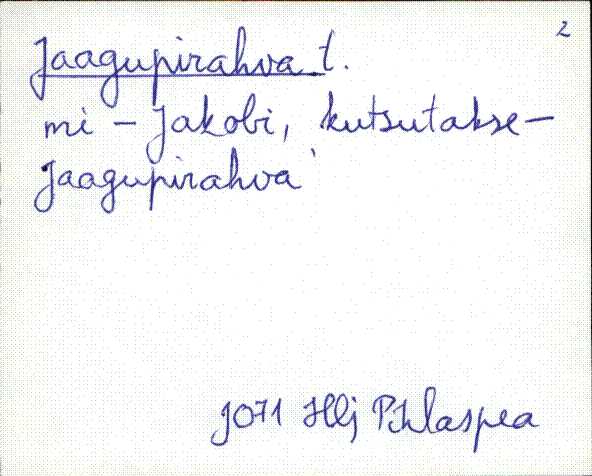 2
Jaagupirahva t.
mi – Jakobi, kutsutakse –
Jaagupirahva'
Jõ71 Hlj Pihlaspea